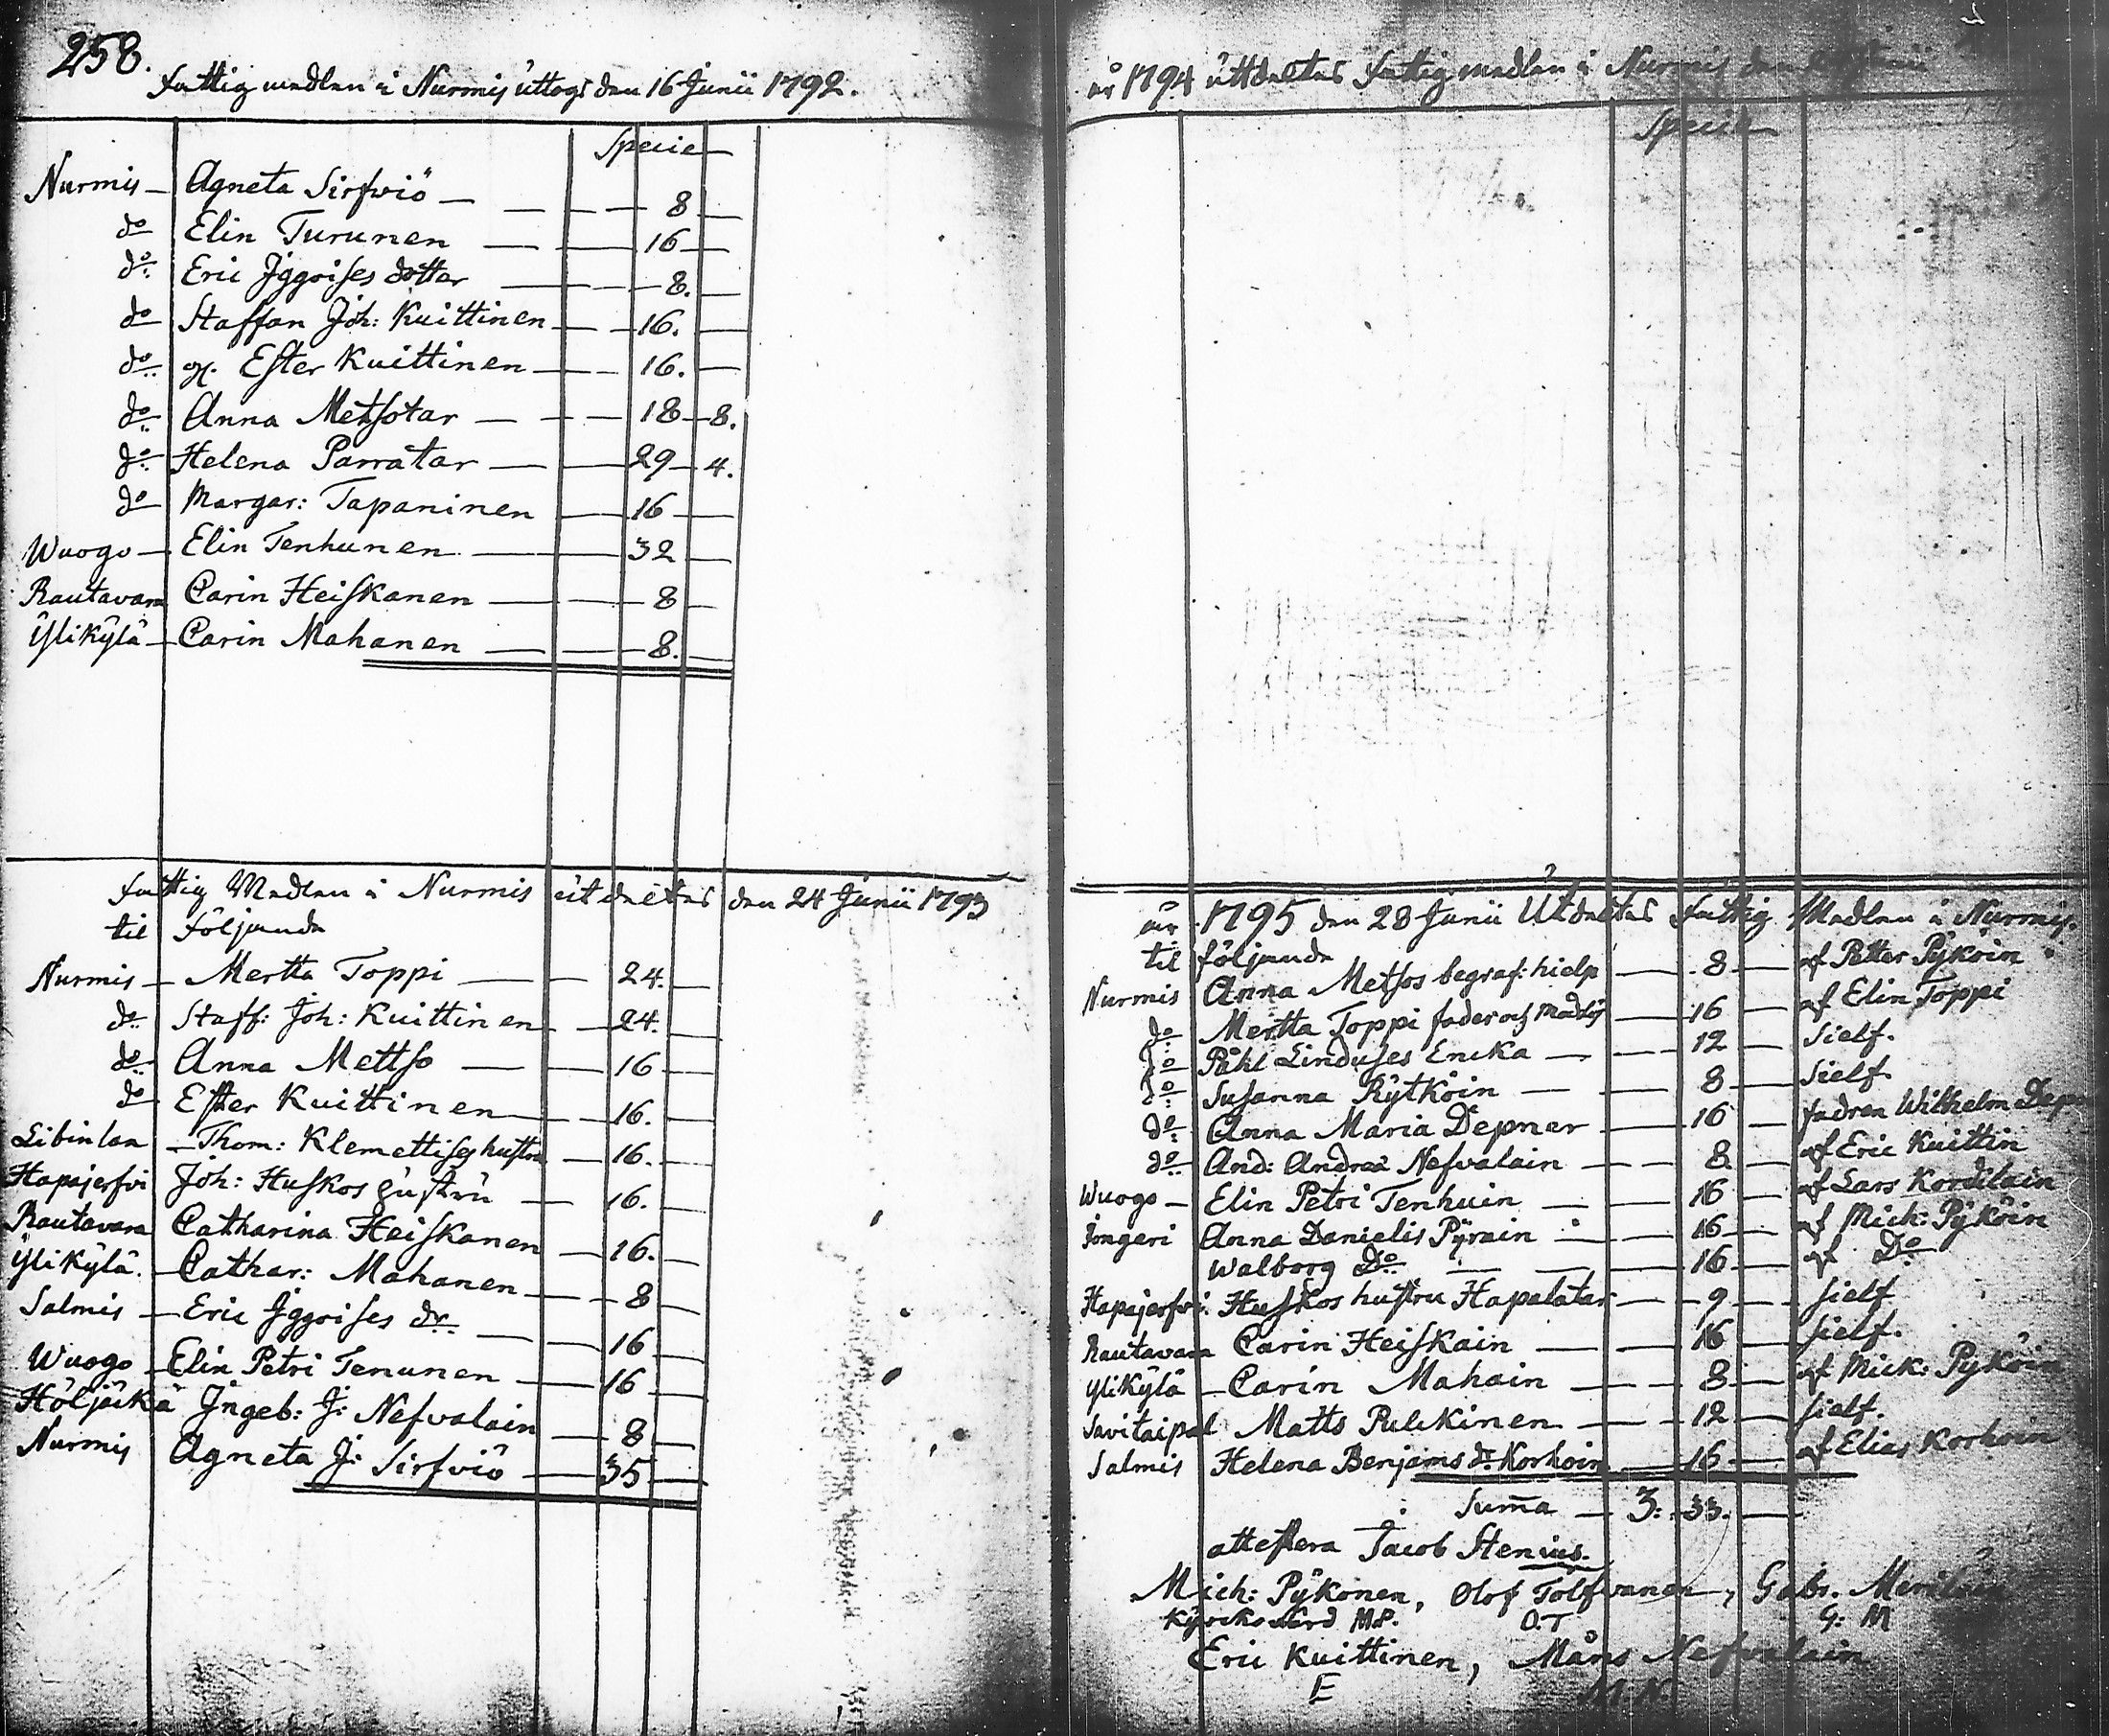 258.
fattig medlen i Nurmis uttogs den 16 Junii 1792.
Specie
Nurmis – Agneta Sirfwiö – 8
do Elin Turunen – 16
do Eric Iggoises dotter – 8.
do Staffan Joh: Kuittinen – 16.
do Ester Kuittinen – 16.
do Anna Metsotar – 18 – 8.
do Helena Parratar – 29 – 4.
do Margar: Tapaninen – 16
Wuogo – Elin Tenhunen – 32
Rautavara Carin Heiskanen – 8
Ylikylä – Carin Mahanen – 8.
fattig Medlen i Nurmis utdeltes den 24 Junii 1793
til följande
Nurmis – Mertta Toppi – 24.
do Staff: Joh: Kuittinen – 24.
do Anna Mettso – 16
do Ester Kuittinen – 16.
Libinlax – Thom: Klemettises hustru – 16.
Hapajerfvi Joh: Huskos hustru – 16.
Rautavara Catharina Heiskanen – 16.
Ylikylä. – Cathar: Mahanen – 8
Salmis – Eric Iggoises dr – 16
Wuogo – Elin Petri Tenunen – 16
Höljäkä Ingeb: J: Nefvalain – 8
Nurmis Agneta J: Sirfviö – 35
år 1794 utdeltes fattig medlen i Nurmis den Junii
Specie
år 1795 den 28 Junii Utdeltes fattig Medlen i Nurmis.
til följande
Nurmis Anna Metsos begraf: hielp – 8 – af Petter Pyköin
do Mertta Toppi foder och – 16 – af Elin Toppi
do Påhl Linduses Encka – 12 – sielf.
do Susanna Rytköin – 8 – sielf
do Anna Maria Depner – 16 – fadren Wilhelm
do And: Andreæ Nefvalain – 8 – af Eric Kuittin
Wuogo – Elin Petri Tenhuin – 16 – af Lars Kordilain
Jongeri Anna Danielis Pyrain – 16 – af Mich: Pyköin
Walborg Do – 16 – af Do
Hapajerfvi. Huskos hustru Hapalatar – 9 – sielf
Rautavara Carin Heiskain – 16 – sielf.
Ylikylä – Carin Mahain – 8 – af Mick: Pyköin
Savitaipal Matts Pulckinen – 12 – sielf.
Salmis Helena Benjams dr Korhoin – 16 – af Elias Korhoin
Suma – 3: 33.
attestera Jacob Stenius.
Mich: Pykonen, Olof Tolfvanen, Gabr.
Kyrcko värd M.P. O.T G: M
Eric Kuittinen, Måns Nefvalain
E M. N.